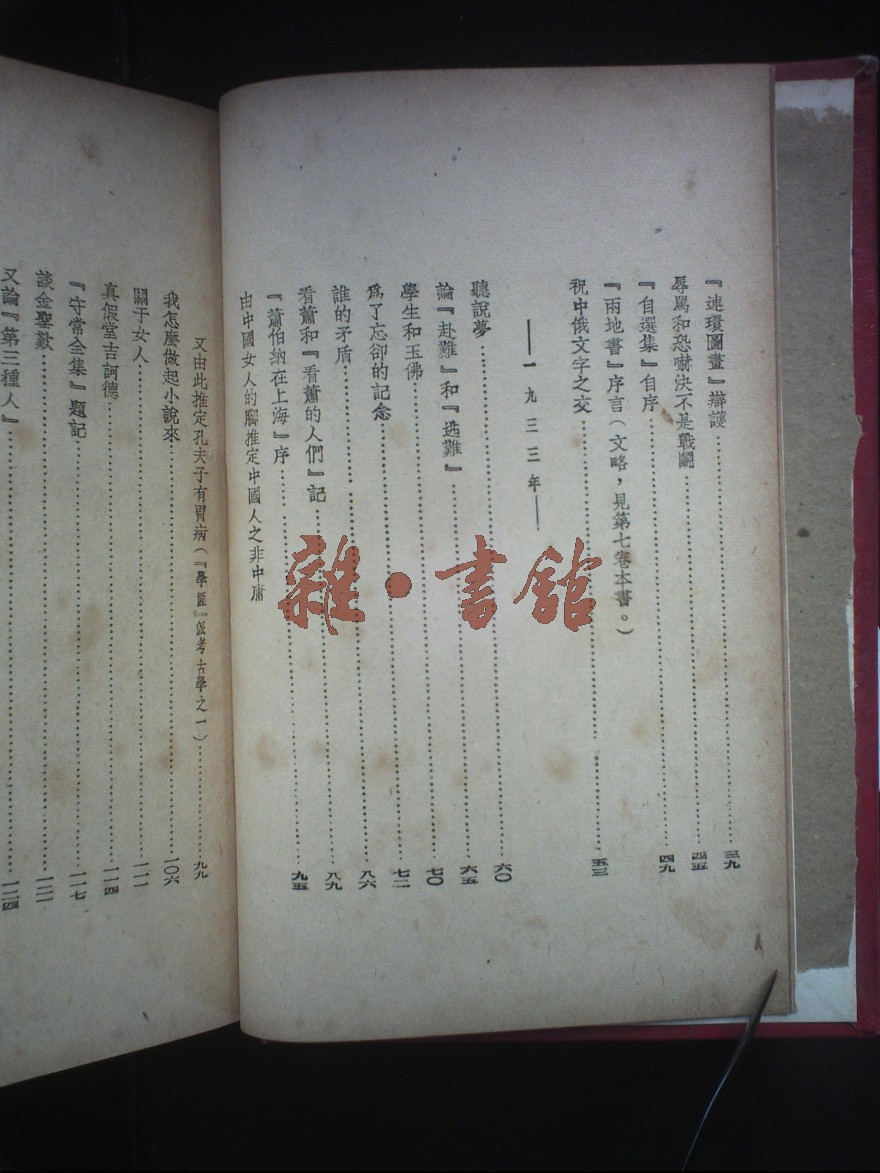 『連環圖畫』辯護……三九
辱罵和恐嚇決不是戰鬭……四五
『自選集』自序……四九
『兩地書』序言（文略，見第七卷本書。）
祝中俄文字之交……五三
——一九三三年——
聽說夢……六〇
論『赴難』和『逃難』……六五
學生和玉佛……七〇
爲了忘卻的記念……七二
誰的矛盾……八六
看蕭和『看蕭的人們』記……八九
『蕭伯納在上海』序……九五
由中國女人的腳推定中國人之非中庸
又由此推定孔夫子有胃病（『學匪』派考古學之一）……九九
我怎麼做起小說來……一〇六
關于女人……一一一
真假堂吉訶德……一一四
『守常全集』題記……一一七
談金聖歎……一二一
又論『第三種人』……一二四
雜·書館